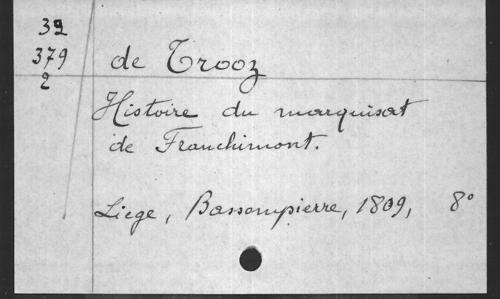 39
379
2
de Trooz
Histoire du marquisat
de Franchimont.
Liege, Bassompierre, 1809, 8°